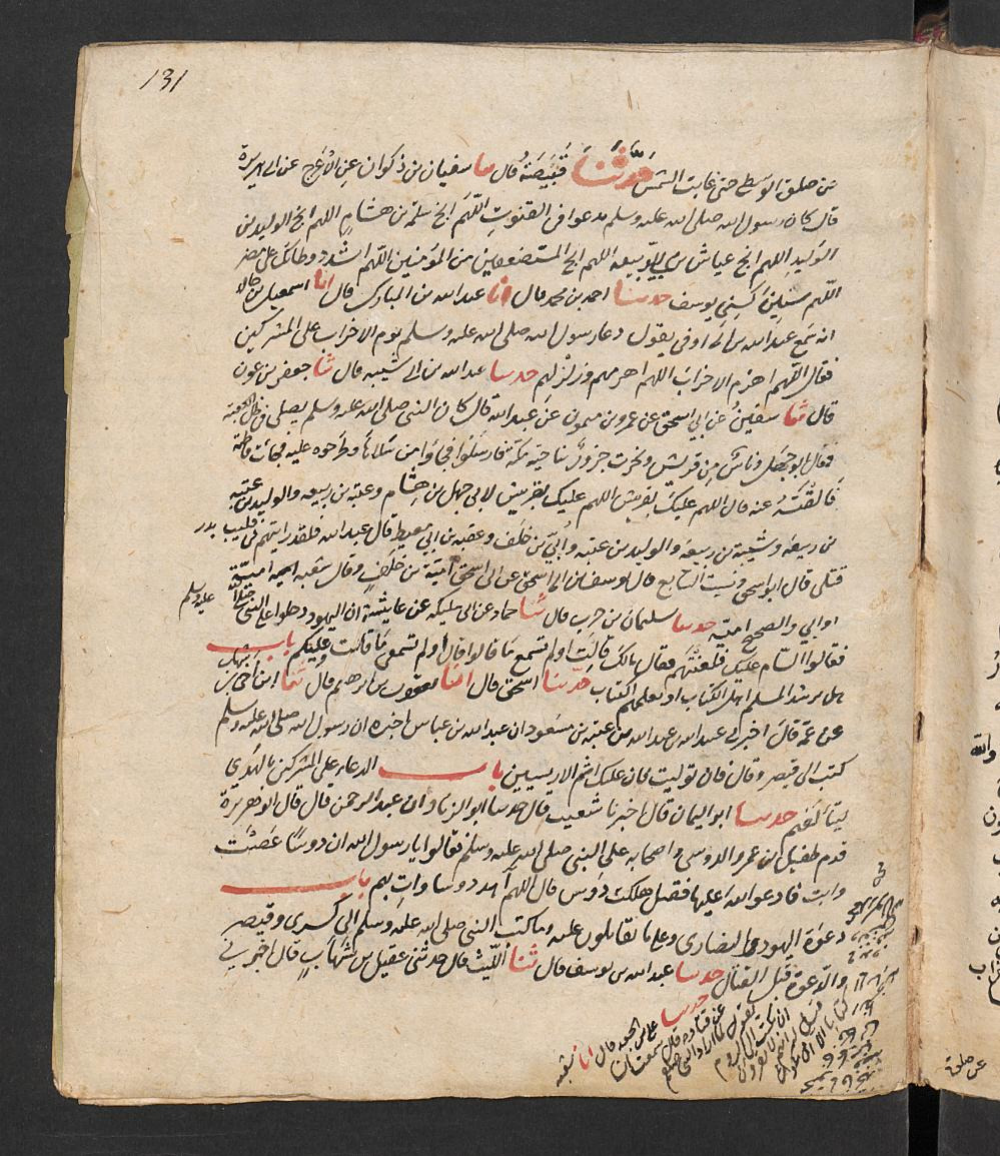 131
عن صلوة الوسطى حتى غابت الشمس حدثنا قبيصة قال ثنا سفيان بن ذكوان عن الاعرج عن ابي هريرة
قال كان رسول الله صلى الله عليه وسلم يدعو في القنوت اللهم انج سلمة بن هشام اللهم انج الوليد بن
الوليد اللهم انج عياش بن ابي ربيعة اللهم انج المستضعفين من المؤمنين اللهم اشدد وطأتك على مضر
اللهم سنين كسني يوسف حدثنا احمد بن محمد قال انا عبد الله بن المبارك قال انا اسمعيل بن خالد
انه سمع عبد الله بن ابي اوفى يقول دعا رسول الله صلى الله عليه وسلم يوم الاحزاب على المشركين
فقال اللهم اهزم الاحزاب اللهم اهزمهم وزلزلهم حدثنا عبد الله بن ابي شيبة قال ثنا جعفر بن عون
قال ثنا سفين عن ابي اسحق عن عمرو بن ميمون عن عبد الله قال كان النبي صلى الله عليه وسلم يصلي في ظل الكعبة
فقال ابو جهل وناس من قريش ونحرت جزور بناحية مكة فارسلوا فجاؤا من سلاها وطرحوه عليه فجائت فاطمة
فالقته عنه قال اللهم عليك بقريش اللهم عليك بقريش لابي جهل بن هشام وعتبة بن ربيعة والوليد بن عتبة
بن ربيعة وشيبة بن ربيعة والوليد بن عتبة وابي بن خلف وعقبة بن ابي معيط قال عبد الله فلقد رايتهم في قليب بدر
قتلى قال ابو اسحق ونسيت السابع قال يوسف بن ابي اسحق عن ابي اسحق امية بن خلف وقال شعبة امية
او ابي والصحيح امية حدثنا سليمان بن حرب قال ثنا حماد عن ابي مليكة عن عايشة ان اليهود دخلوا على النبي صلى الله عليه وسلم
فقالوا السام عليك فلعنتهم فقال مالك قالت او لم تسمع ما قالوا قال او لم تسمعي ما قلت وعليكم باب
هل يرشد المسلم اهل الكتاب او يعلمهم الكتاب حدثنا اسحق قال انا يعقوب بن ابرهيم قال ثنا ابن اخي بن شهاب
عن عمه قال اخبرني عبيد الله بن عبد الله بن عتبة بن مسعود ان عبد الله بن عباس اخبره ان رسول الله صلى الله عليه وسلم
كتب الى قيصر وقال فان توليت فان عليك اثم الاريسيين باب الدعاء على المشركين بالهدى
ليتألفهم حدثنا ابو اليمان قال اخبرنا شعيب قال حدثنا ابو الزناد ان عبد الرحمن قال قال ابو هريرة
قدم طفيل بن عمرو الدوسي واصحابه على النبي صلى الله عليه وسلم فقالوا يا رسول الله ان دوسا عصت
وابت فادعو الله عليها فقيل هلكت دوس قال اللهم اهد دوسا وات بهم باب
دعوة اليهودي والنصارى وعلى ما تقاتلون عليه وما كتب النبي صلى الله عليه وسلم الى كسرى وقيصر
والدعوة قبل القتال حدثنا عبد الله بن يوسف قال ثنا الليث قال حدثني عقيل بن شهاب قال اخبرني
حدثنا
علي بن الجعد قال انا شعبة
عن قتادة قال سمعت انسا
يقول لما اراد النبي صلعم
ان يكتب الى الروم
قيل له انهم لا يقرؤن
كتابا الا ان يكون
عن صلوة